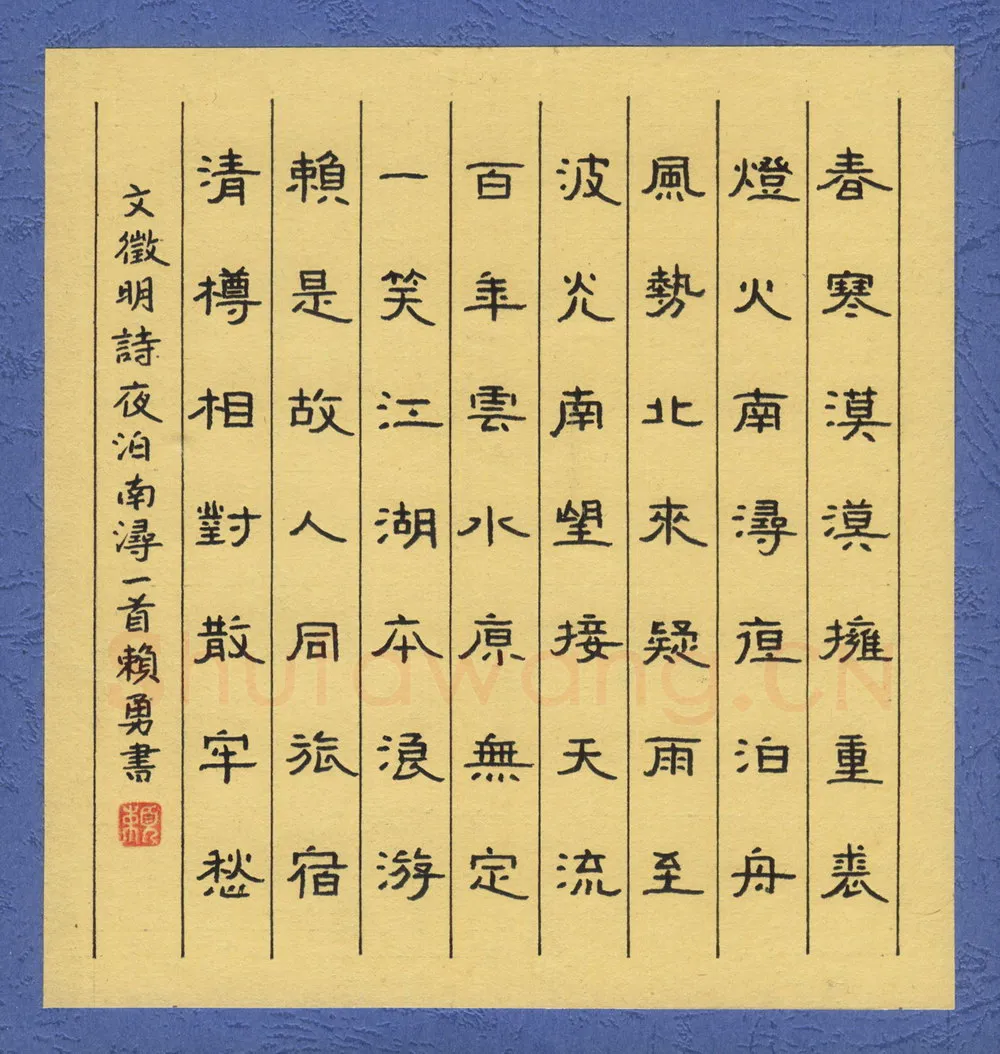 春寒漠漠擁重裘
燈火南潯夜泊舟
風勢北來疑雨至
波光南望接天流
百年雲水原無定
一笑江湖本浪游
賴是故人同旅宿
清樽相對散牢愁
文徵明詩夜泊南潯一首賴勇書
賴
Shufawang.CN